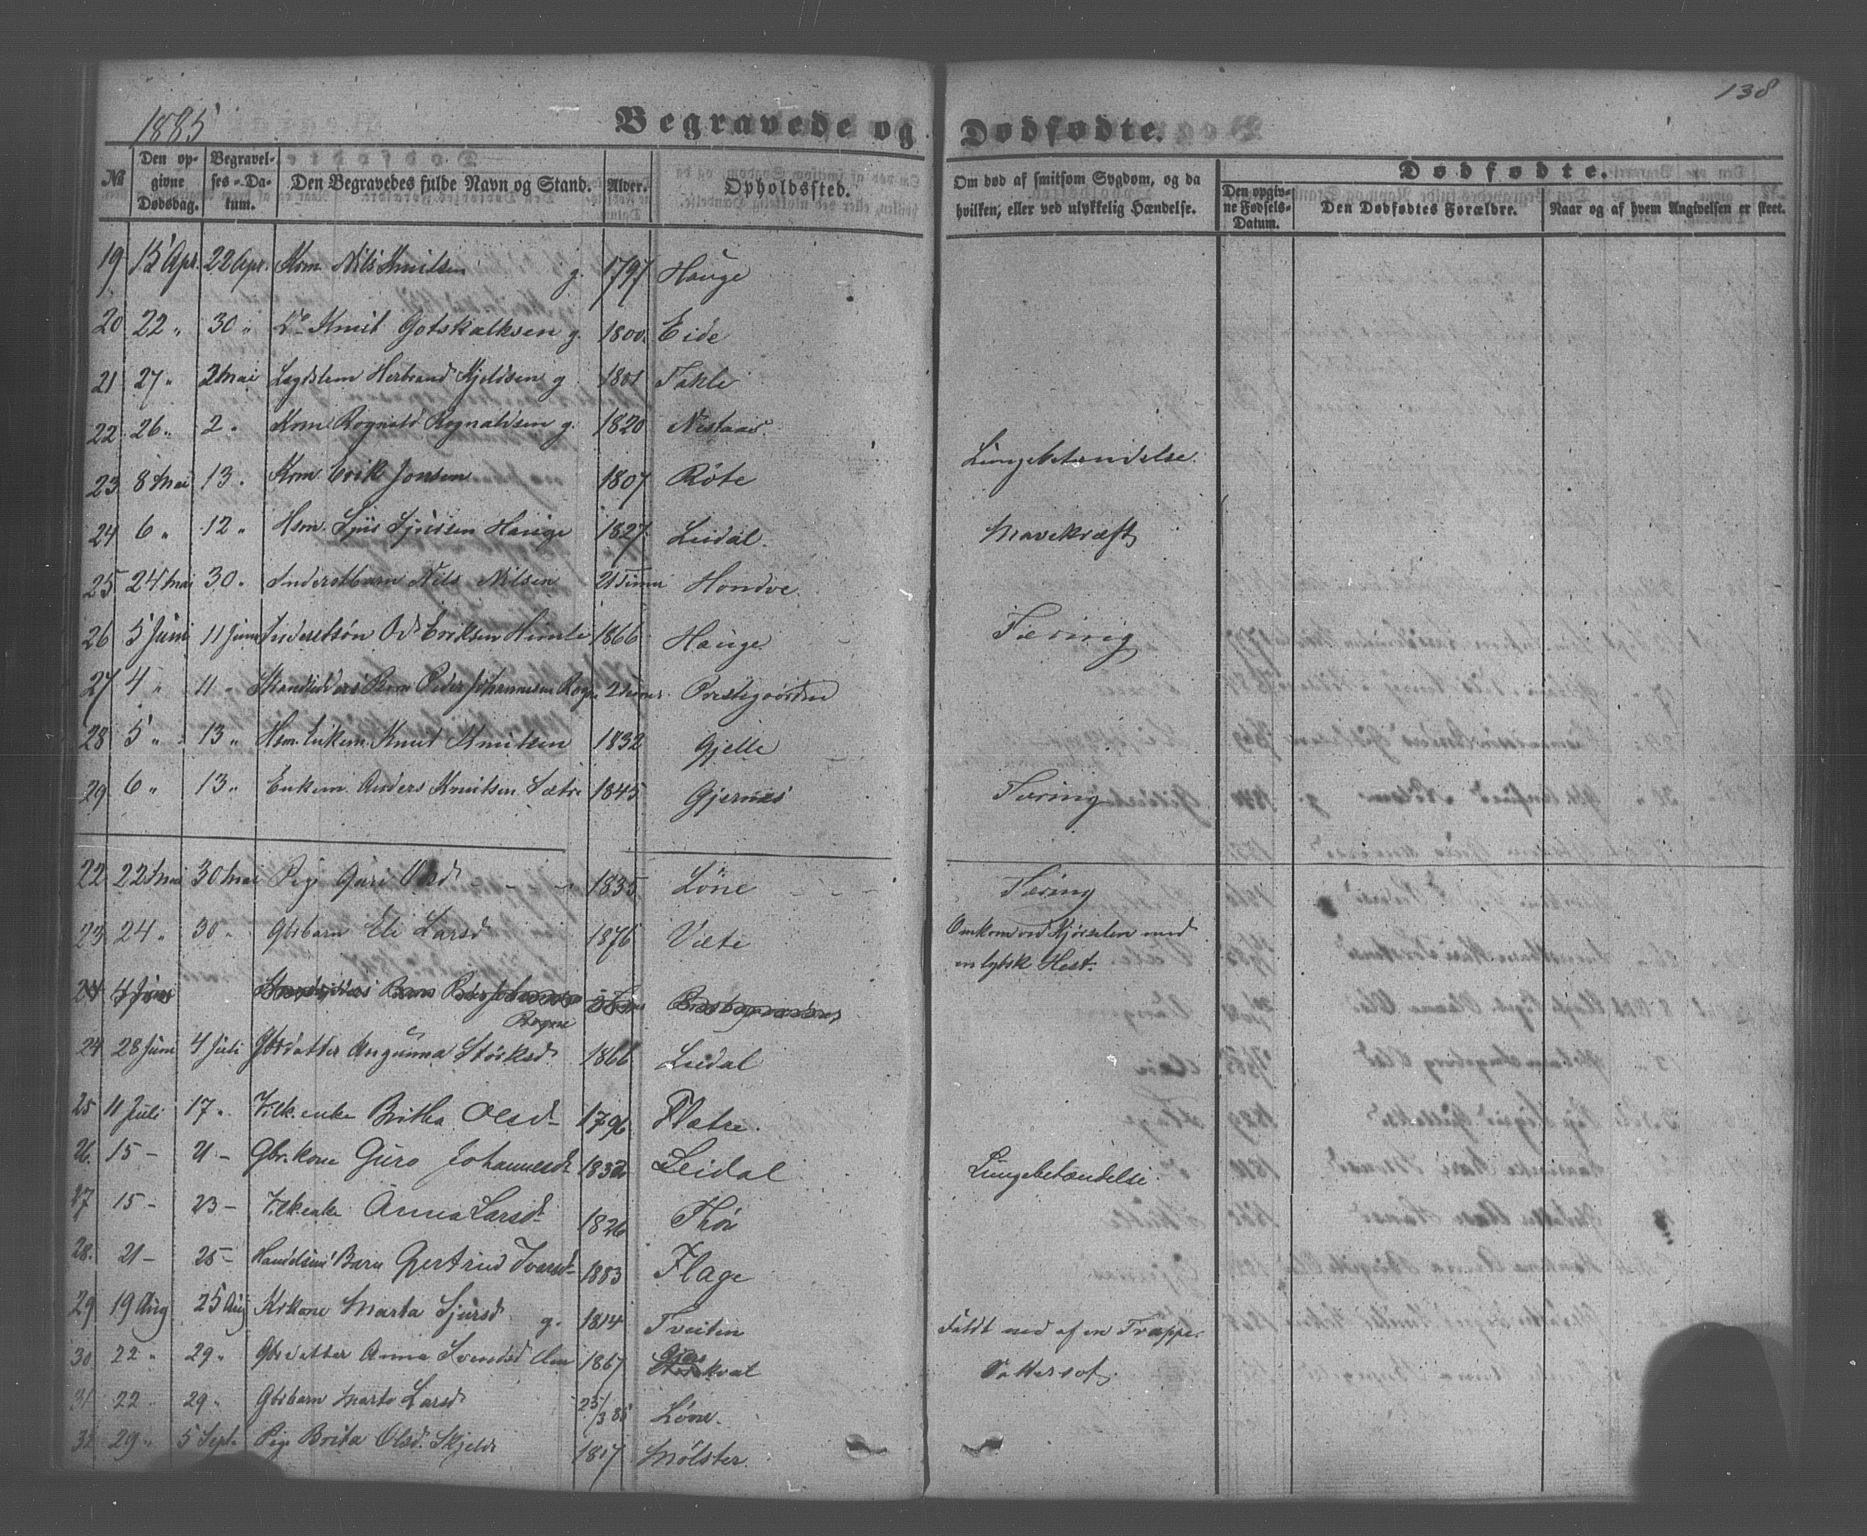 138
1885
Begravede og Dødfødte.
№ Den opgivne Dødsdag. Begravelses-Datum. Den Begravedes fulde Navn og Stand. Alder. Opholdssted. Om død af smitsom Sygdom, og da hvilken, eller ved ulykkelig Hændelse.
Dødfødte.
Den opgivne Fødsels-Datum. Den Dødfødtes Forældre. Naar og af hvem Angivelsen er skeet.
19 15 Apr. 22 Apr. Kom Nils Knutsen g. 1797 Hauge
20 22 " 30 " Do Knut Gotskalksen g. 1800 Eide
21 27 " 2 Mai Lægdslem Herbrand Kjeldsen g 1801 Takle
22 26 " 2 " Kom Rognald Rognaldsen g. 1820 Nestaas Lungebetændelse.
23 8 Mai 13 " Kom Erik Jonsen 1807 Røte
24 6 " 12 " Hsm. Sjur Sjursen Hauge 1827 Leidal. Mavekræft
25 24 Mai 30 " Inderstbarn Nils Nilsen 21 Timer Hondve
26 5 Juni 11 Juni Inderstsøn Od Eriksen Himle 1866 Hauge Tæring
27 4 " 11 " Barn Peder Johannesen Rogne 2 Timer Prestegaarden
28 5 " 13 " Hsm. Enkem. Knut Knutsen 1832 Gjelle
29 6 " 13 " Enkem. Anders Knutsen Sætre 1845 Gjernes Tæring
22 22 Mai 30 Mai Pige Guri Olsd 1835 Løne Tæring
23 24 " 30 " Gbrbarn Eli Larsd 1876 Væte Omkom ved Kjørselen med en lybsk Hest.
24 4 Juni Barn Rogne
24 28 Juni 4 Juli Gbrdatter Angunna Størksd 1866 Leidal
25 11 Juli 17 " Flk.enke Britha Olsd 1796 Flatre.
26. 15 - 21 - Gbr.kone Guro Johannesd Leidal Lungebetændelse.
27 15 - 23 - Flkenke Anna Larsd 1826 Thön
28. 21 - 28 - Handelsm Barn Gertrud Ivarsd 1883 Flage
29 19 Aug 25 Aug Kone Marta Sjursd g. 1814 Tveiten Faldt ned af en Trappe.
30 22 " 29 " Gbrdatter Anna Svendsd 1867 Vattersot.
31 22 " 29 " Gbrbarn Marta Larsd 25/3 85 Løne.
32 29 " 5 Sept. Pige Brita Olsd. Skjelde 1817 Mølster.